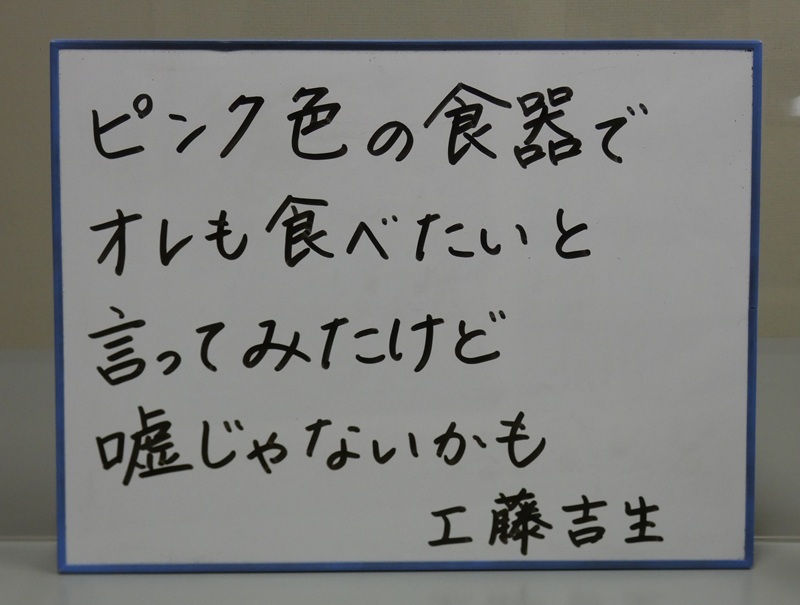 ピンク色の食器で
オレも食べたいと
言ってみたけど
嘘じゃないかも
工藤吉生